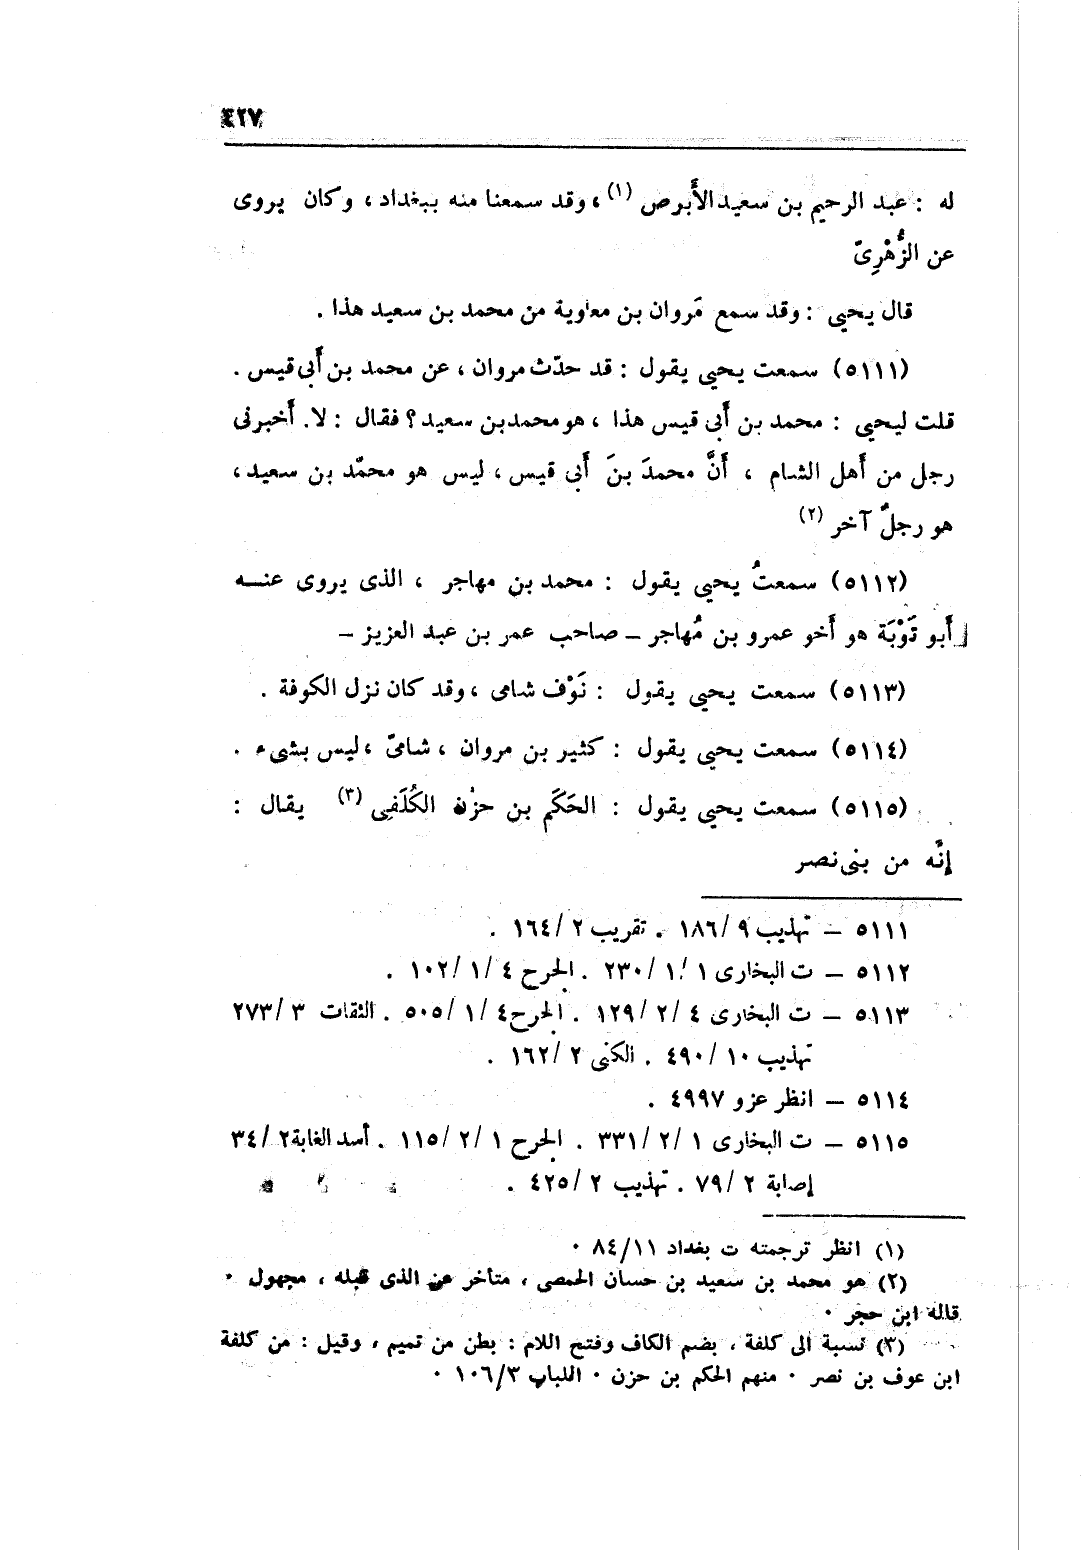 ٤٢٧
له : عبد الرحيم بن سعيد الأَبرص (١) ، وقد سمعنا منه ببغداد ، وكان يروى
عن الزُّهْرِىّ
قال يحيى : وقد سمع مَروان بن معاوية من محمد بن سعيد هذا .
(٥١١١) سمعت يحيى يقول : قد حدّث مروان ، عن محمد بن أَبى قيس .
قلت ليحيى : محمد بن أَبى قيس هذا ، هو محمد بن سعيد ؟ فقال : لا. أَخبرنى
رجل من أَهل الشام ، أَنَّ محمدَ بنَ أَبى قيس ، ليس هو محمّد بن سعيد ،
هو رجلٌ آخر (٢)
(٥١١٢) سمعتُ يحيى يقول : محمد بن مهاجر ، الذى يروى عنـــه
أَبو تَوْبَة هو أَخو عمرو بن مُهاجر – صاحب عمر بن عبد العزيز –
(٥١١٣) سمعت يحيى يقول : نَوْف شامى ، وقد كان نزل الكوفة .
(٥١١٤) سمعت يحيى يقول : كثير بن مروان ، شامىّ ، ليس بشىء .
(٥١١٥) سمعت يحيى يقول : الحَكَم بن حزْن الكُلَفِى (٣) يقال :
إنَّه من بنى نصر
٥١١١ – تهذيب ٩ /١٨٦ . تقريب ٢ /١٦٤ .
٥١١٢ – ت البخارى ١ /١ /٢٣٠ . الجرح ٤ /١ /١٠٢ .
٥١١٣ – ت البخارى ٤ /٢ /١٢٩ . الجرح ٤ /١ /٥٠٥ . الثقات ٣ /٢٧٣
تهذيب ١٠ /٤٩٠ . الكنى ٢ /١٦٢ .
٥١١٤ – انظر عزو ٤٩٩٧ .
٥١١٥ – ت البخارى ١ /٢ /٣٣١ . الجرح ١ /٢ /١١٥ . أسد الغابة ٢ /٣٤
إصابة ٢ /٧٩ . تهذيب ٢ /٤٢٥ .
(١) انظر ترجمته ت بغداد ٨٤/١١ ٠
(٢) هو محمد بن سعيد بن حسان الحمصى ، متأخر عن الذى قبله ، مجهول ٠
قاله ابن حجر ٠
(٣) نسبة الى كلفة ، بضم الكاف وفتح اللام : بطن من تميم ، وقيل : من كلفة
ابن عوف بن نصر ٠ منهم الحكم بن حزن ٠ اللباب ١٠٦/٣ ٠